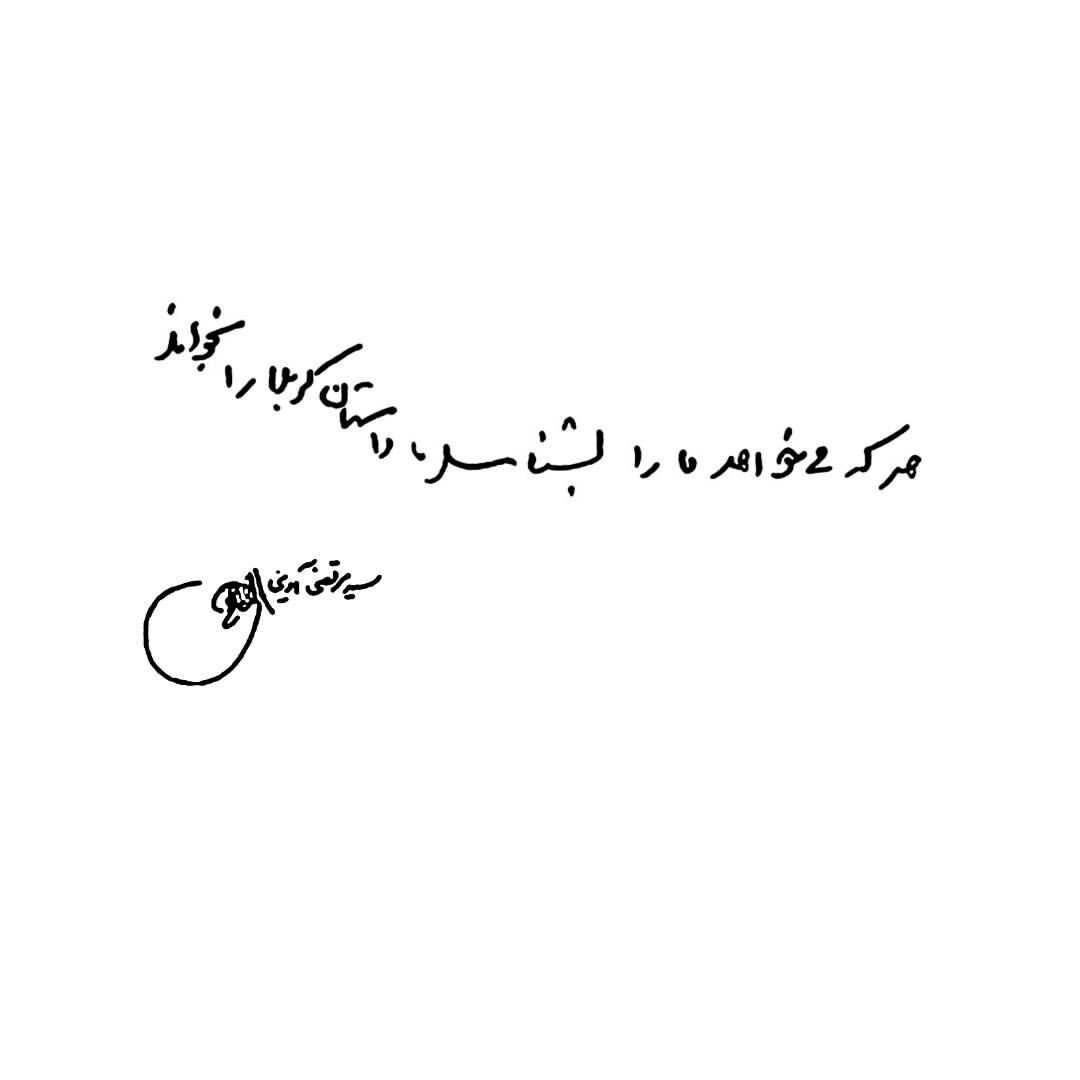 هر که می‌خواهد ما را بشناسد داستان کربلا را بخواند
سید مرتضی آوینی